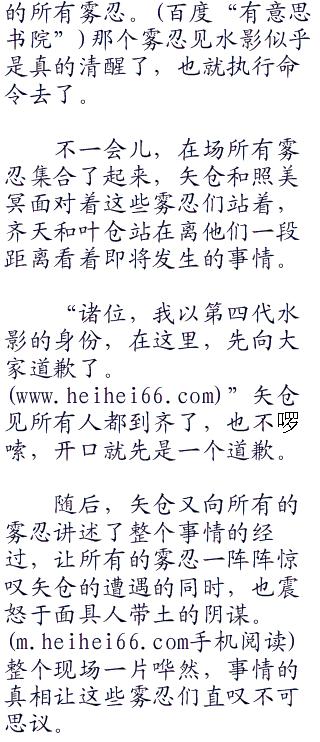 的所有雾忍。(百度“有意思
书院”)那个雾忍见水影似乎
是真的清醒了，也就执行命
令去了。
不一会儿，在场所有雾
忍集合了起来，矢仓和照美
冥面对着这些雾忍们站着，
齐天和叶仓站在离他们一段
距离看着即将发生的事情。
“诸位，我以第四代水
影的身份，在这里，先向大
家道歉了。
(www.heihei66.com)”矢仓
见所有人都到齐了，也不啰
嗦，开口就先是一个道歉。
随后，矢仓又向所有的
雾忍讲述了整个事情的经
过，让所有的雾忍一阵阵惊
叹矢仓的遭遇的同时，也震
怒于面具人带土的阴谋。
(m.heihei66.com手机阅读)
整个现场一片哗然，事情的
真相让这些雾忍们直叹不可
思议。